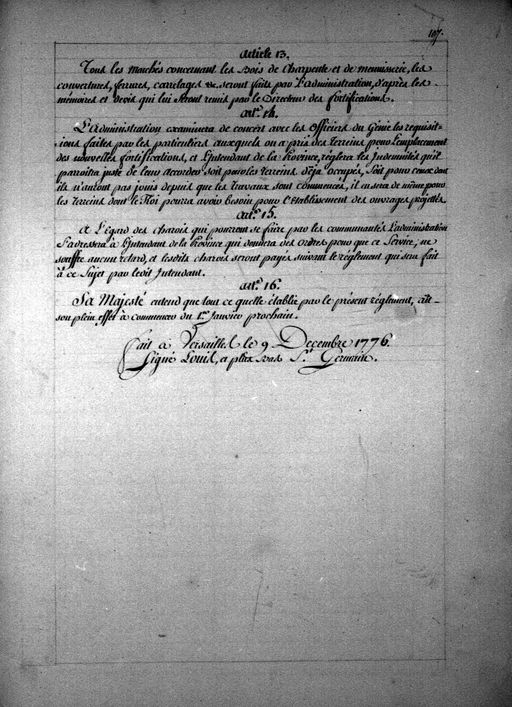 107.
Article 13.
Tous les marchés concernant les Bois de Charpente et de menuiserie, les
couvertures, ferrures, carrelages &c. seront faits par l'administration, d'après les
mémoires et devis qui lui seront remis par le Directeur des fortifications.
art.e 14.
L'Administration examinera de concert avec les Officiers du Génie les requisit-
ions faites par les particuliers auxquels on a pris des terreins pour l'emplacement
des nouvelles fortifications, et l'Intendant de la Province, réglera les Indemnités qu'il
paroitra juste de leur accorder soit pour les terreins déja occupés, soit pour ceux dont
ils n'auront pas jouis depuis que les travaux sont commencés, il en sera de même pour
les terreins dont le Roi pourra avoir besoin pour l'établissement des ouvrages projettés.
art.e 15.
A l'égard des charois qui pourront se faire par les communautés l'administration
s'adressera à l'Intendant de la Province qui donnera des ordres pour que ce Service, ne
souffre aucun retard, et lesdits charois seront payés suivant le réglement qui sera fait
à ce Sujet par ledit Intendant.
art.e 16.
Sa Majesté entend que tout ce qu'elle établie par le présent réglement, ait
son plein effet à commencer du 1.er Janvier prochain.
Fait à Versailles le 9 Decembre 1776.
Signé Louis, et plus bas S.t Germain.